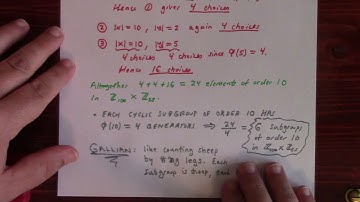 Hence ① gives 4 choices
② |x|=10, |y|=2 again 4 choices.
③ |x|=10, |y|=5
4 choices 4 choices since φ(5)=4.
Hence 16 choices.
Altogether 4+4+16 = 24 elements of order 10
in ℤ₁₀₀ × ℤ₂₅.
• EACH CYCLIC SUBGROUP OF ORDER 10 HAS
φ(10)=4 GENERATORS ⇒ 24/4 = 6 subgroups
of order 10
in ℤ₁₀₀×ℤ₂₅
GALLIAN: like counting sheep
by legs. Each
subgroup is sheep, each